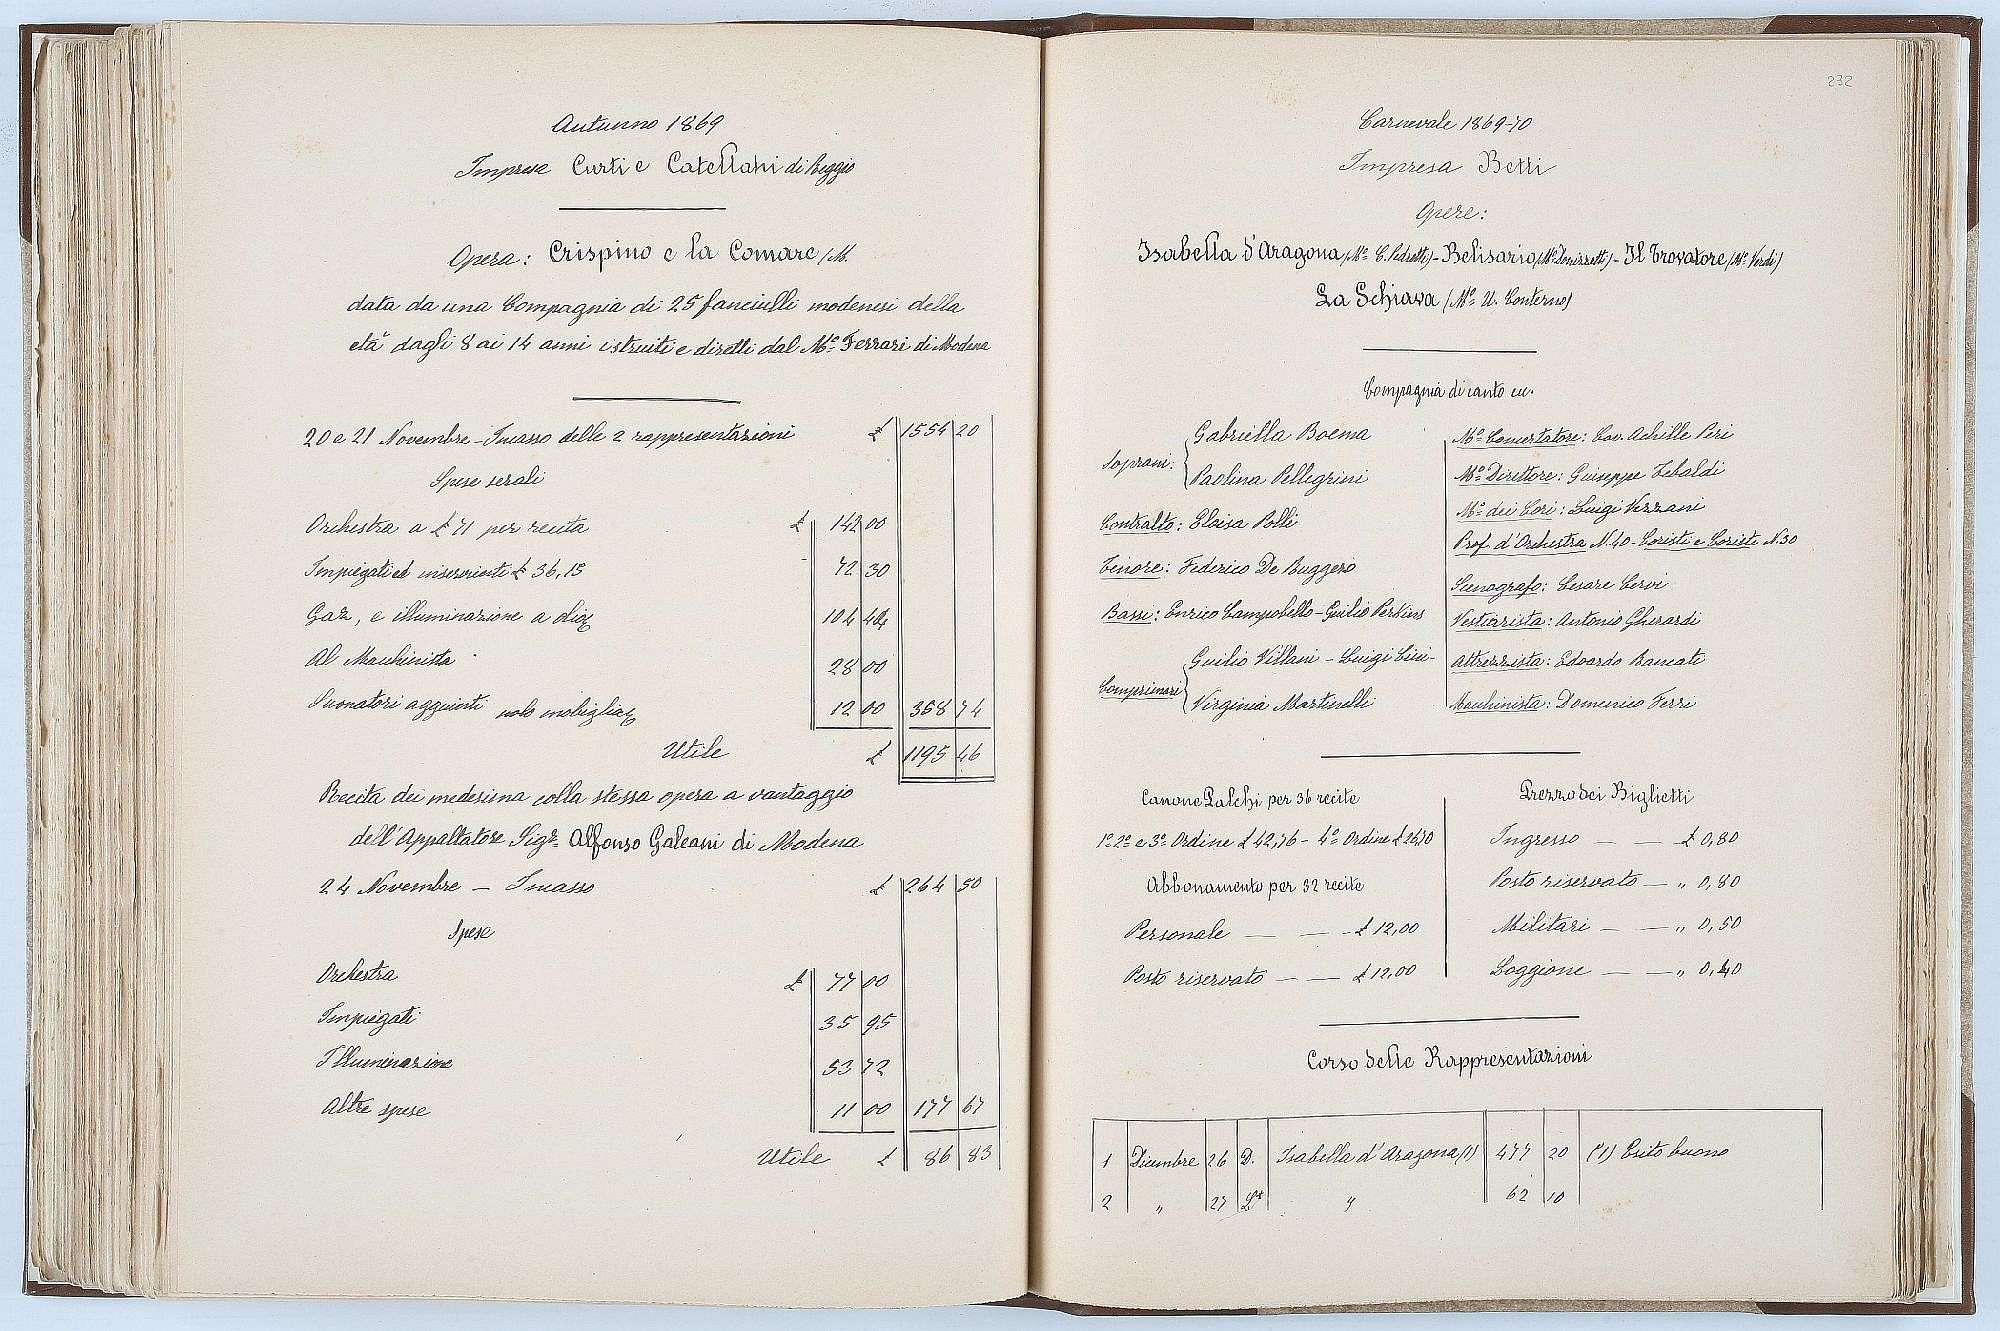 Autunno 1869
Impresa Curti e Catellani di Reggio
Opera: Crispino e la Comare /M.
data da una Compagnia di 25 fanciulli modenesi della
età dagli 8 ai 14 anni istruiti e diretti dal Mo. Ferrari di Modena
20 e 21 Novembre - Incasso delle 2 rappresentazioni £ 1554 20
Spese serali
Orchestra a £ 71 per recita £ 142 00
Impiegati ed inservienti £ 36,15 72 30
Gaz, e illuminazione a olio 104 44
Al Macchinista 28 00
Suonatori aggiunti nolo mobiglia 12 00 358 74
Utile £ 1195 46
Recita dei medesima colla stessa opera a vantaggio
dell'Appaltatore Sigr. Alfonso Galeani di Modena
24 Novembre - Incasso £ 264 50
Spese
Orchestra £ 77 00
Impiegati 35 95
Illuminazione 53 72
Altre spese 11 00 177 67
Utile £ 86 83
232
Carnevale 1869-70
Impresa Betti
Opere:
Isabella d'Aragona (Mo. C. Pedrotti) - Belisario (Mo. Donizzetti) - Il Trovatore (Mo. Verdi)
La Schiava (Mo. U. Conterno)
Compagnia di canto ec.
Soprani: Gabriella Boema
Paolina Pellegrini
Contralto: Eloisa Polli
Tenore: Federico De Ruggero
Bassi: Enrico Campobello - Giulio Perkins
Comprimari Giulio Villani - Luigi Cini -
Virginia Martinelli
Mo. Concertatore: Cav. Achille Peri
Mo. Direttore: Guiseppe Tebaldi
Mo. dei Cori: Luigi Vezzani
Prof. d'Orchestra N. 40 - Coristi e Coriste N. 30
Scenografo: Cesare Cervi
Vestiarista: Antonio Gherardi
Attrezzista: Edoardo Bancati
Macchinista: Domenico Ferri
Canone Palchi per 36 recite
1o. 2o. e 3o. Ordine £ 42,76 - 4o. Ordine £ 26,70
Abbonamento per 32 recite
Personale — — - £ 12,00
Posto riservato — — £ 12,00
Prezzo dei Biglietti
Ingresso — — £ 0,80
Posto riservato — „ 0,80
Militari — — „ 0,50
Loggione — — „ 0,40
Corso delle Rappresentazioni
1 Dicembre 26 D. Isabella d'Aragona (1) 477 20 (1) Esito buono
2 „ 27 L* „ 62 10